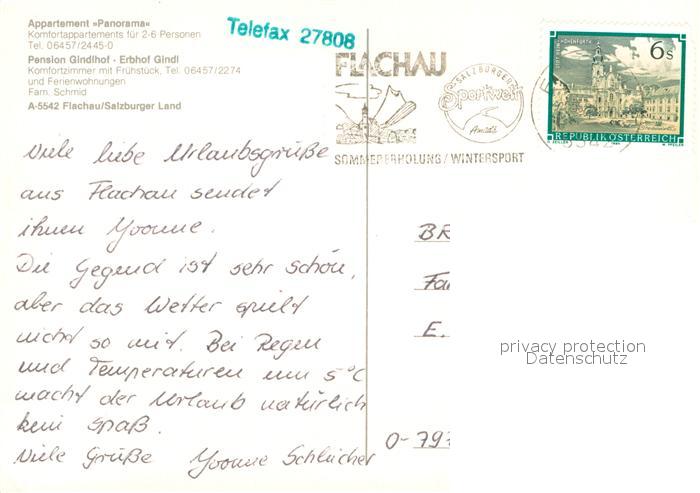 Appartement »Panorama«
Komfortappartements für 2-6 Personen
Tel. 06457/2445-0
Pension Gindlhof · Erbhof Gindl
Komfortzimmer mit Frühstück, Tel. 06457/2274
und Ferienwohnungen
Fam. Schmid
A-5542 Flachau/Salzburger Land
Telefax 27808
FLACHAU
SALZBURGER
Sportwelt
Amadé
SOMMERERHOLUNG/WINTERSPORT
6s
REPUBLIK ÖSTERREICH
Viele liebe Urlaubsgrüße
aus Flachau sendet
ihnen Yvonne.
Die Gegend ist sehr schön,
aber das Wetter spielt
nicht so mit. Bei Regen
und Temperaturen um 5°C
macht der Urlaub natürlich
kein Spaß.
Viele Grüße Yvonne Schlücher
BR
Fa
E.
O-797
privacy protection
Datenschutz